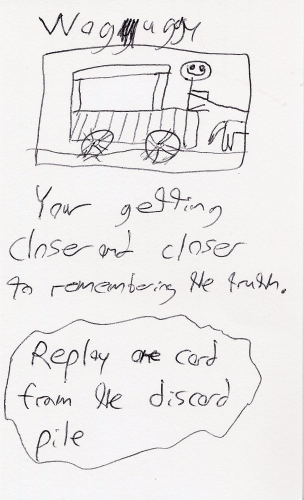 Wagguggy
Your getting
closer and closer
to remembering the truth.
Replay one card
from the discard
pile